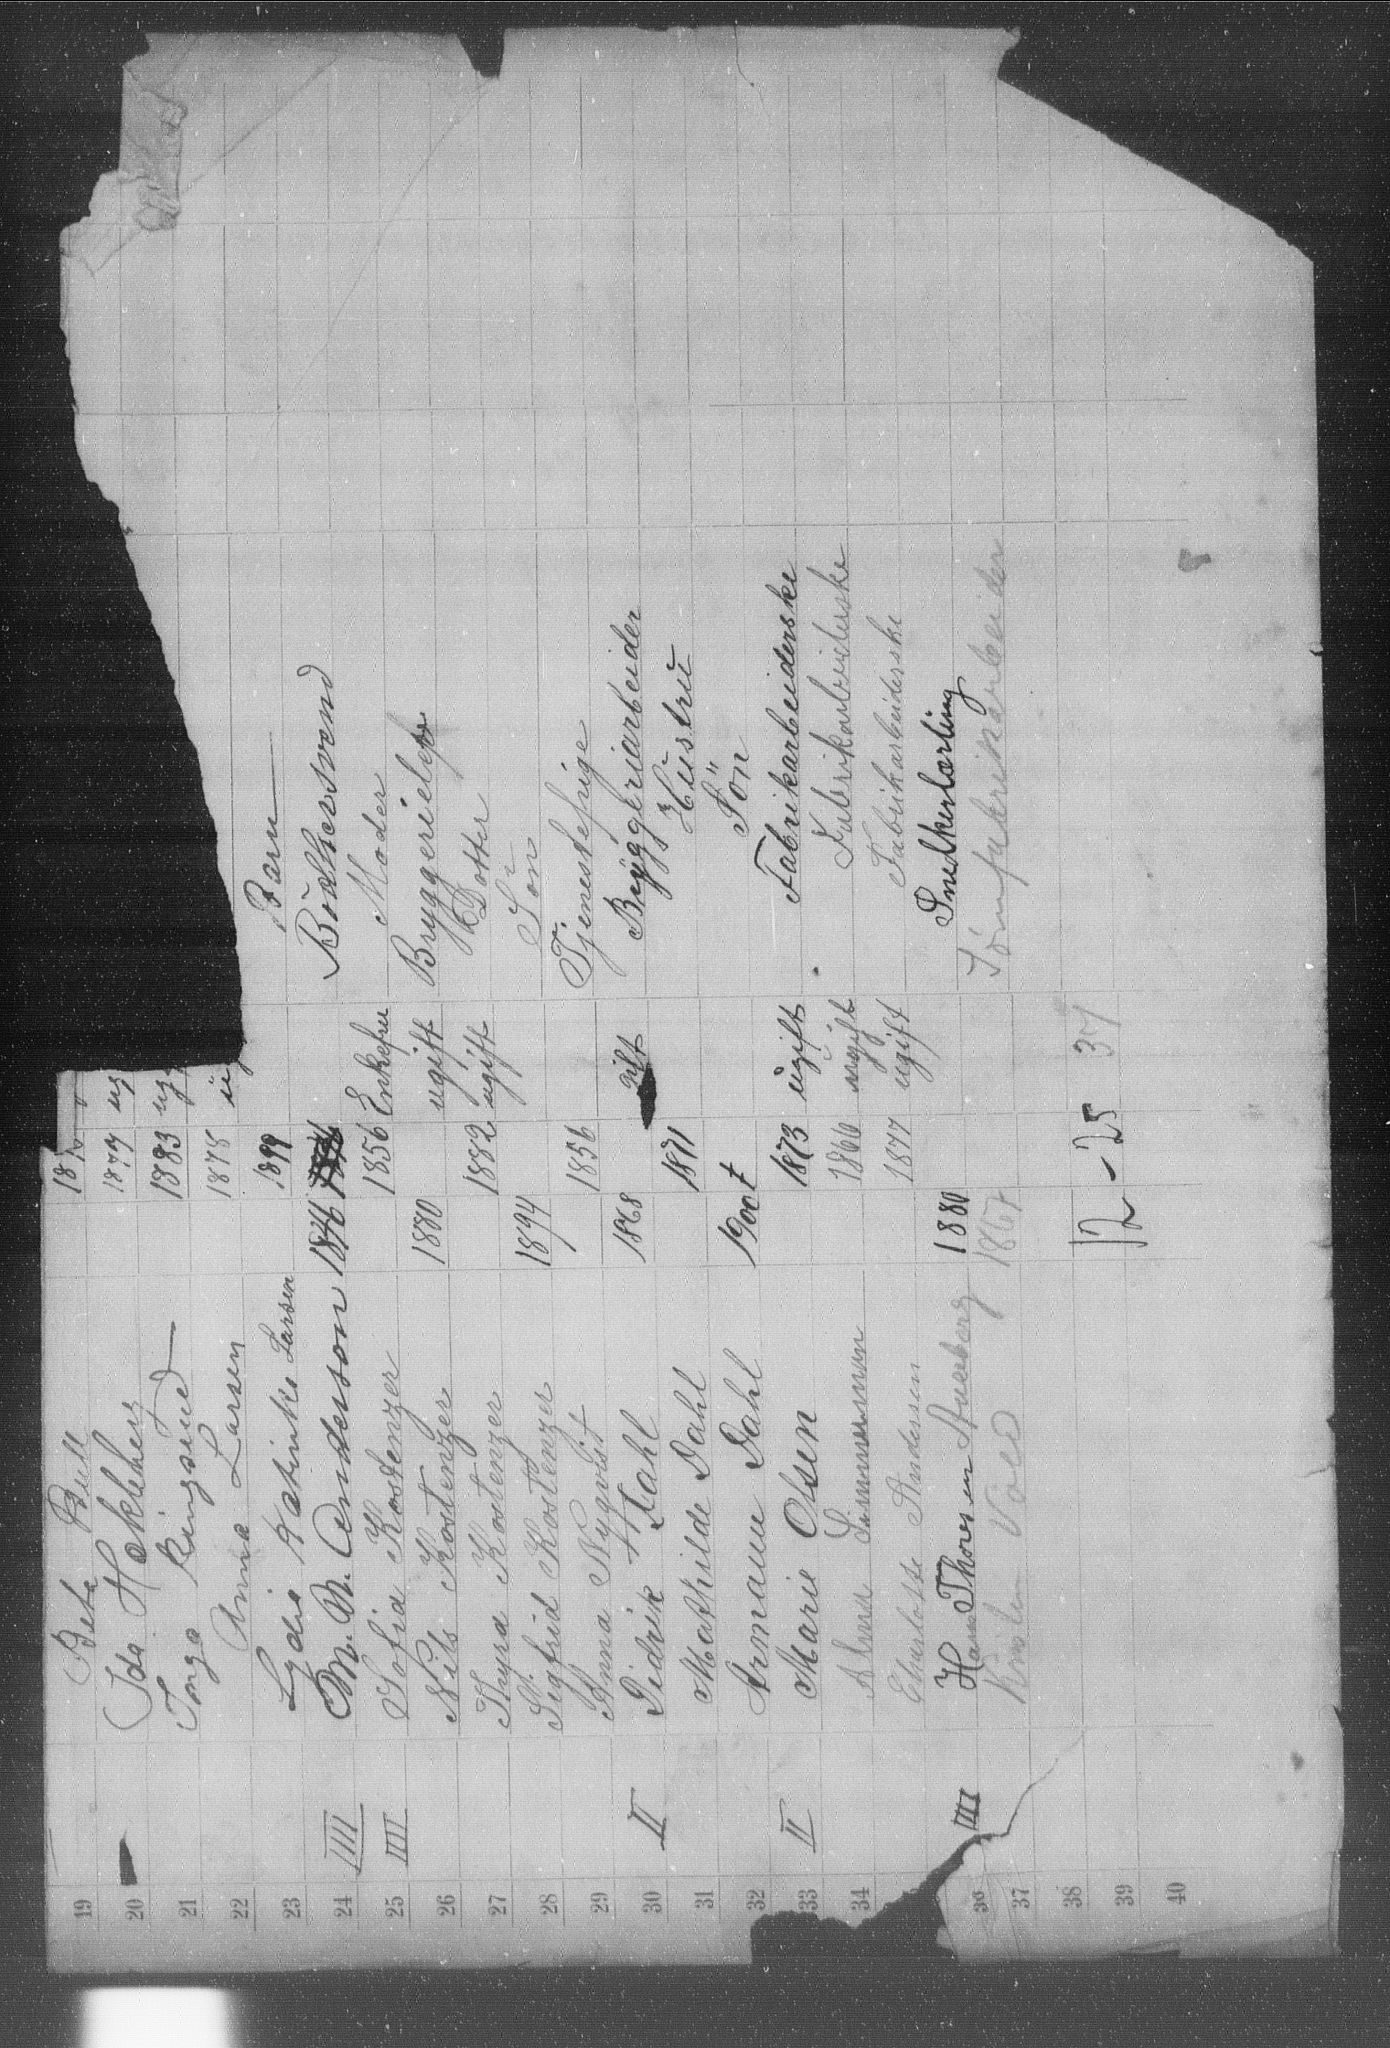 19 Beta Bull 187
20 Ida Hokkberg 1877 ug
21 Inga Ringsrud 1883 ug
22 Anna Larsen 1878 ug
23 Lydia Katinka Larsen 1899 Barn
24 IIII M. M. Andersson 1846 Bödkersvend
25 IIII Sofia Kostenzer 1856 Enkefru Moder
26 Nils Kostenzer 1880 ugift Bryggerielev
27 Thyra Kostenzer 1882 ugift Dotter
28 Sigfrid Kostenzer 1894 Sön
29 Anna Nyqvist 1856 Tjenestepige
30 II Didrik Dahl 1868 gift Bryggeriarbeider
31 Mathilde Dahl 1871 Hustru
32 Armann Dahl 1900 Sön
33 II Marie Olsen 1873 ugift Fabrikarbeiderske
34 Anna 1866 ugift Fabrikarbeiderske
Charlotte Andersen 1877 ugift Fabrikarbeiderske
36 IIII Hans Thoresen 1880 Snedkerlærling
37 1867
38
39 12-25 37
40